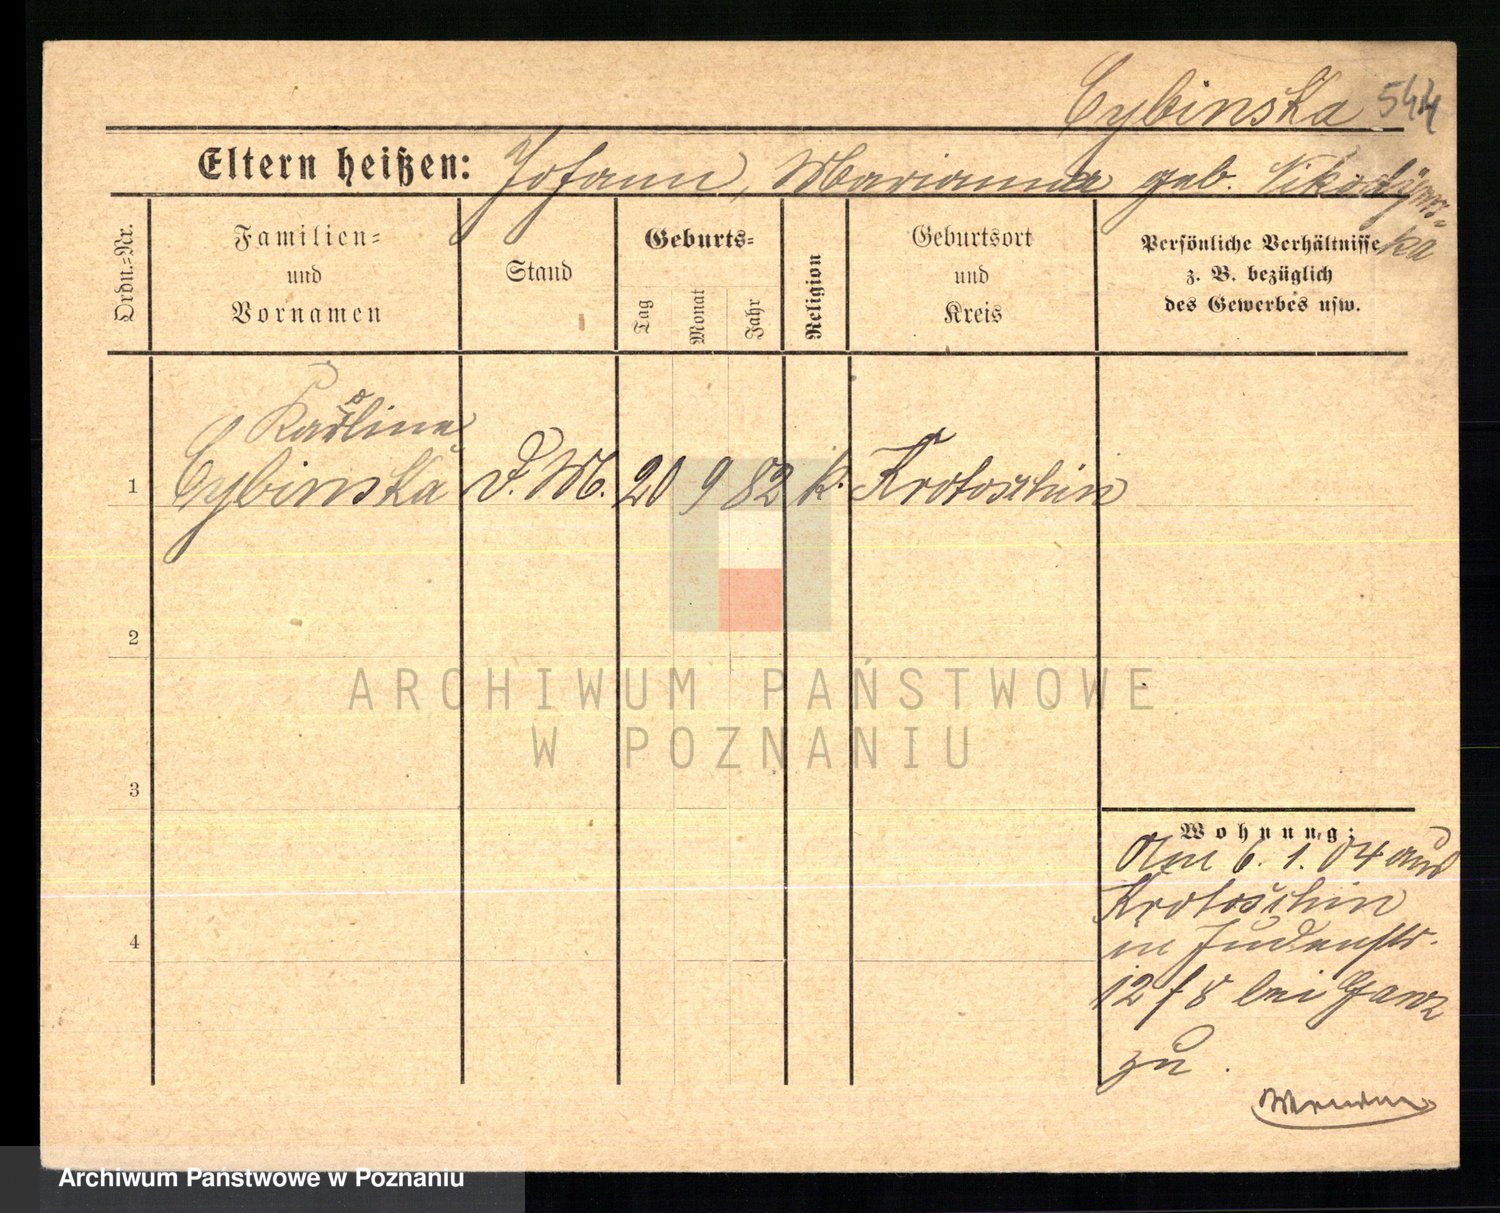 Cybinska 544
Eltern heißen: Johann, Marianna geb. Nikodyms-
ka
Ordn.-Nr.
Familien-
und
Vornamen
Stand
Geburts-
Tag
Monat
Jahr
Religion
Geburtsort
und
Kreis
Persönliche Verhältnisse
z. B. bezüglich
des Gewerbes usw.
Karoline
1 Cybinska D. M. 20 9 82 k. Krotoschin
2
3
4
Wohnung:
Am 6. 1. 04 aus
Krotoschin
in Judenstr.
12/8 bei Ganz
zu.
ARCHIWUM PAŃSTWOWE
W POZNANIU
Archiwum Państwowe w Poznaniu